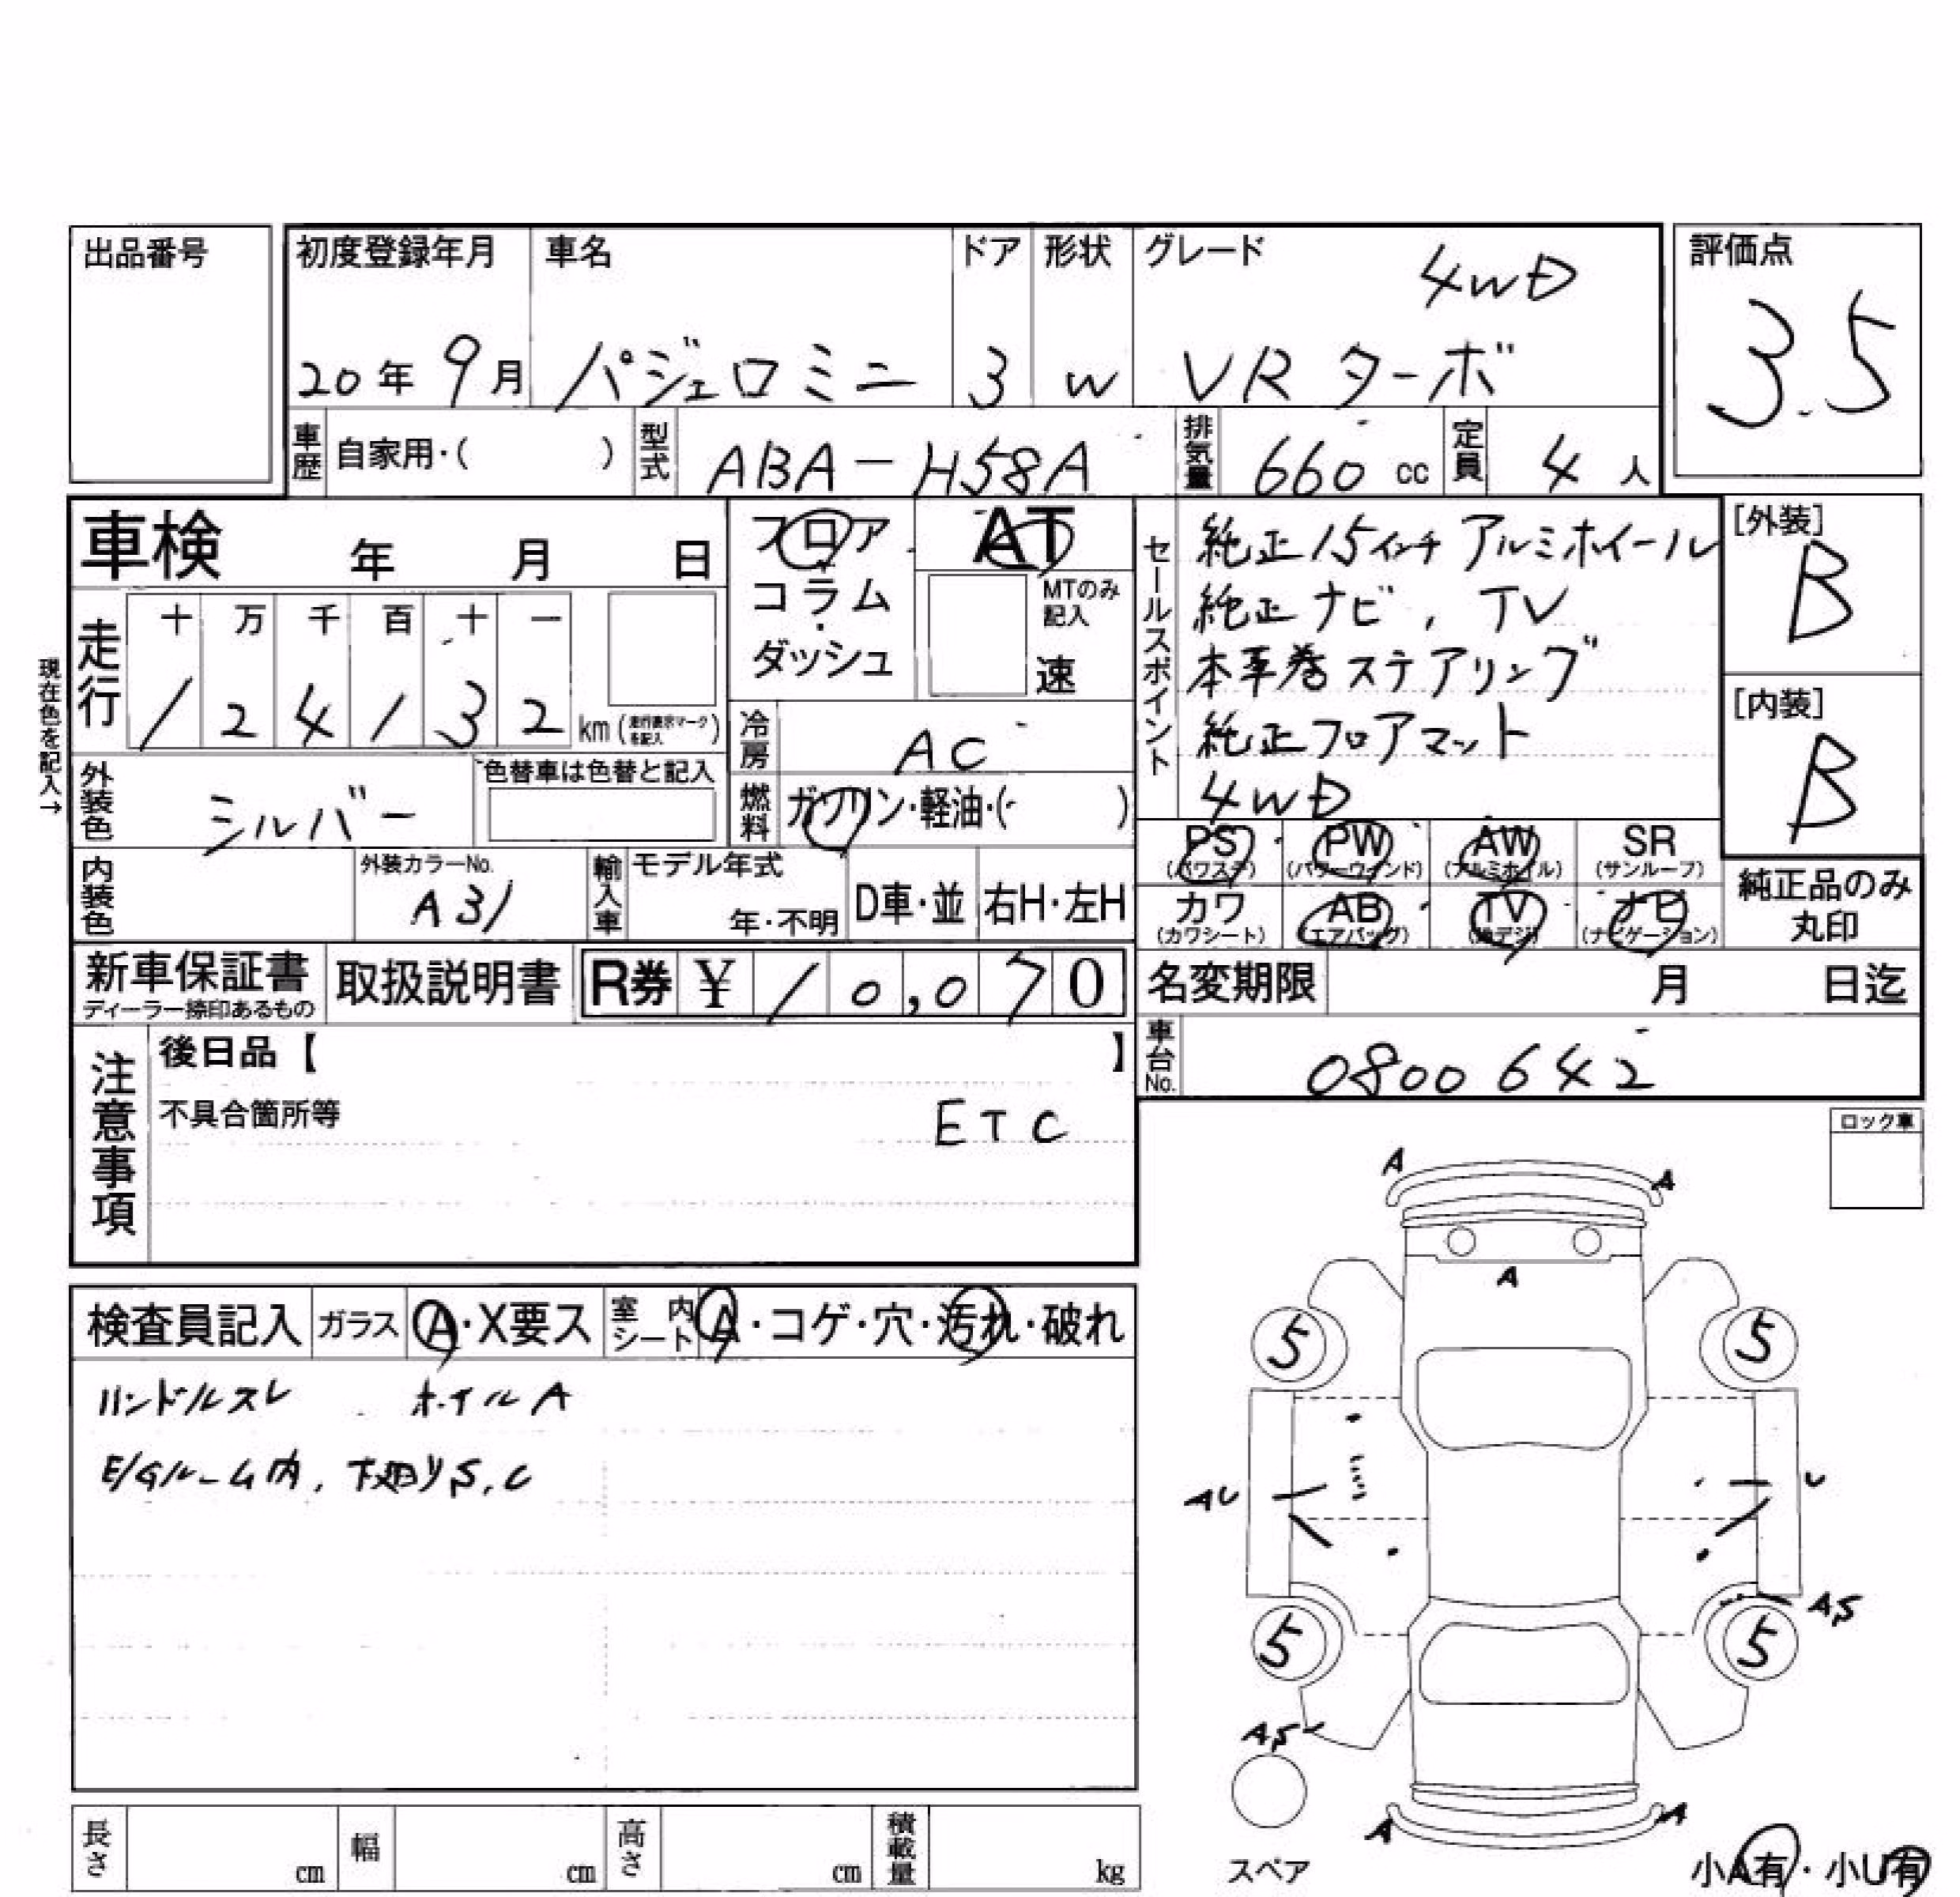 出品番号
初度登録年月 車名 ドア 形状 グレード 4WD 評価点
20年 9月 パジェロミニ 3 W VR ターボ 3.5
車歴 自家用・( ) 型式 ABA-H58A 排気量 660 cc 定員 4 人
車検 年 月 日
フロア AT
コラム・
ダッシュ
MTのみ記入
速
セールスポイント
純正15インチ アルミホイール
純正ナビ, TV
本革巻ステアリング
純正フロアマット
4WD
[外装]
B
[内装]
B
現在色を記入→
走行 十 万 千 百 十 一
1 2 4 1 3 2 km (走行表示マークを記入)
冷房 AC
燃料 ガソリン・軽油・( )
外装色 シルバー 色替車は色替と記入
PS PW AW SR
(パワステ) (パワーウインド) (アルミホイル) (サンルーフ)
カワ AB TV ナビ
(カワシート) (エアバッグ) (地デジ) (ナビゲーション)
純正品のみ
丸印
内装色 外装カラーNo. A31 輸入車 モデル年式 年・不明 D車・並 右H・左H
新車保証書 取扱説明書 R券 ¥ 10,070
ディーラー捺印あるもの
名変期限 月 日迄
車台No. 0800642
注意事項 後日品【 】
不具合箇所等 ETC
ロック車
検査員記入 ガラス A・X要ス 室内シート A・コゲ・穴・汚れ・破れ
ハンドルスレ ホイルA
E/Gルーム内, 下廻りS,C
A A
A
5 5
AU U
AS
5 5
AS
A A
スペア
小A有・小U有
長さ cm 幅 cm 高さ cm 積載量 kg